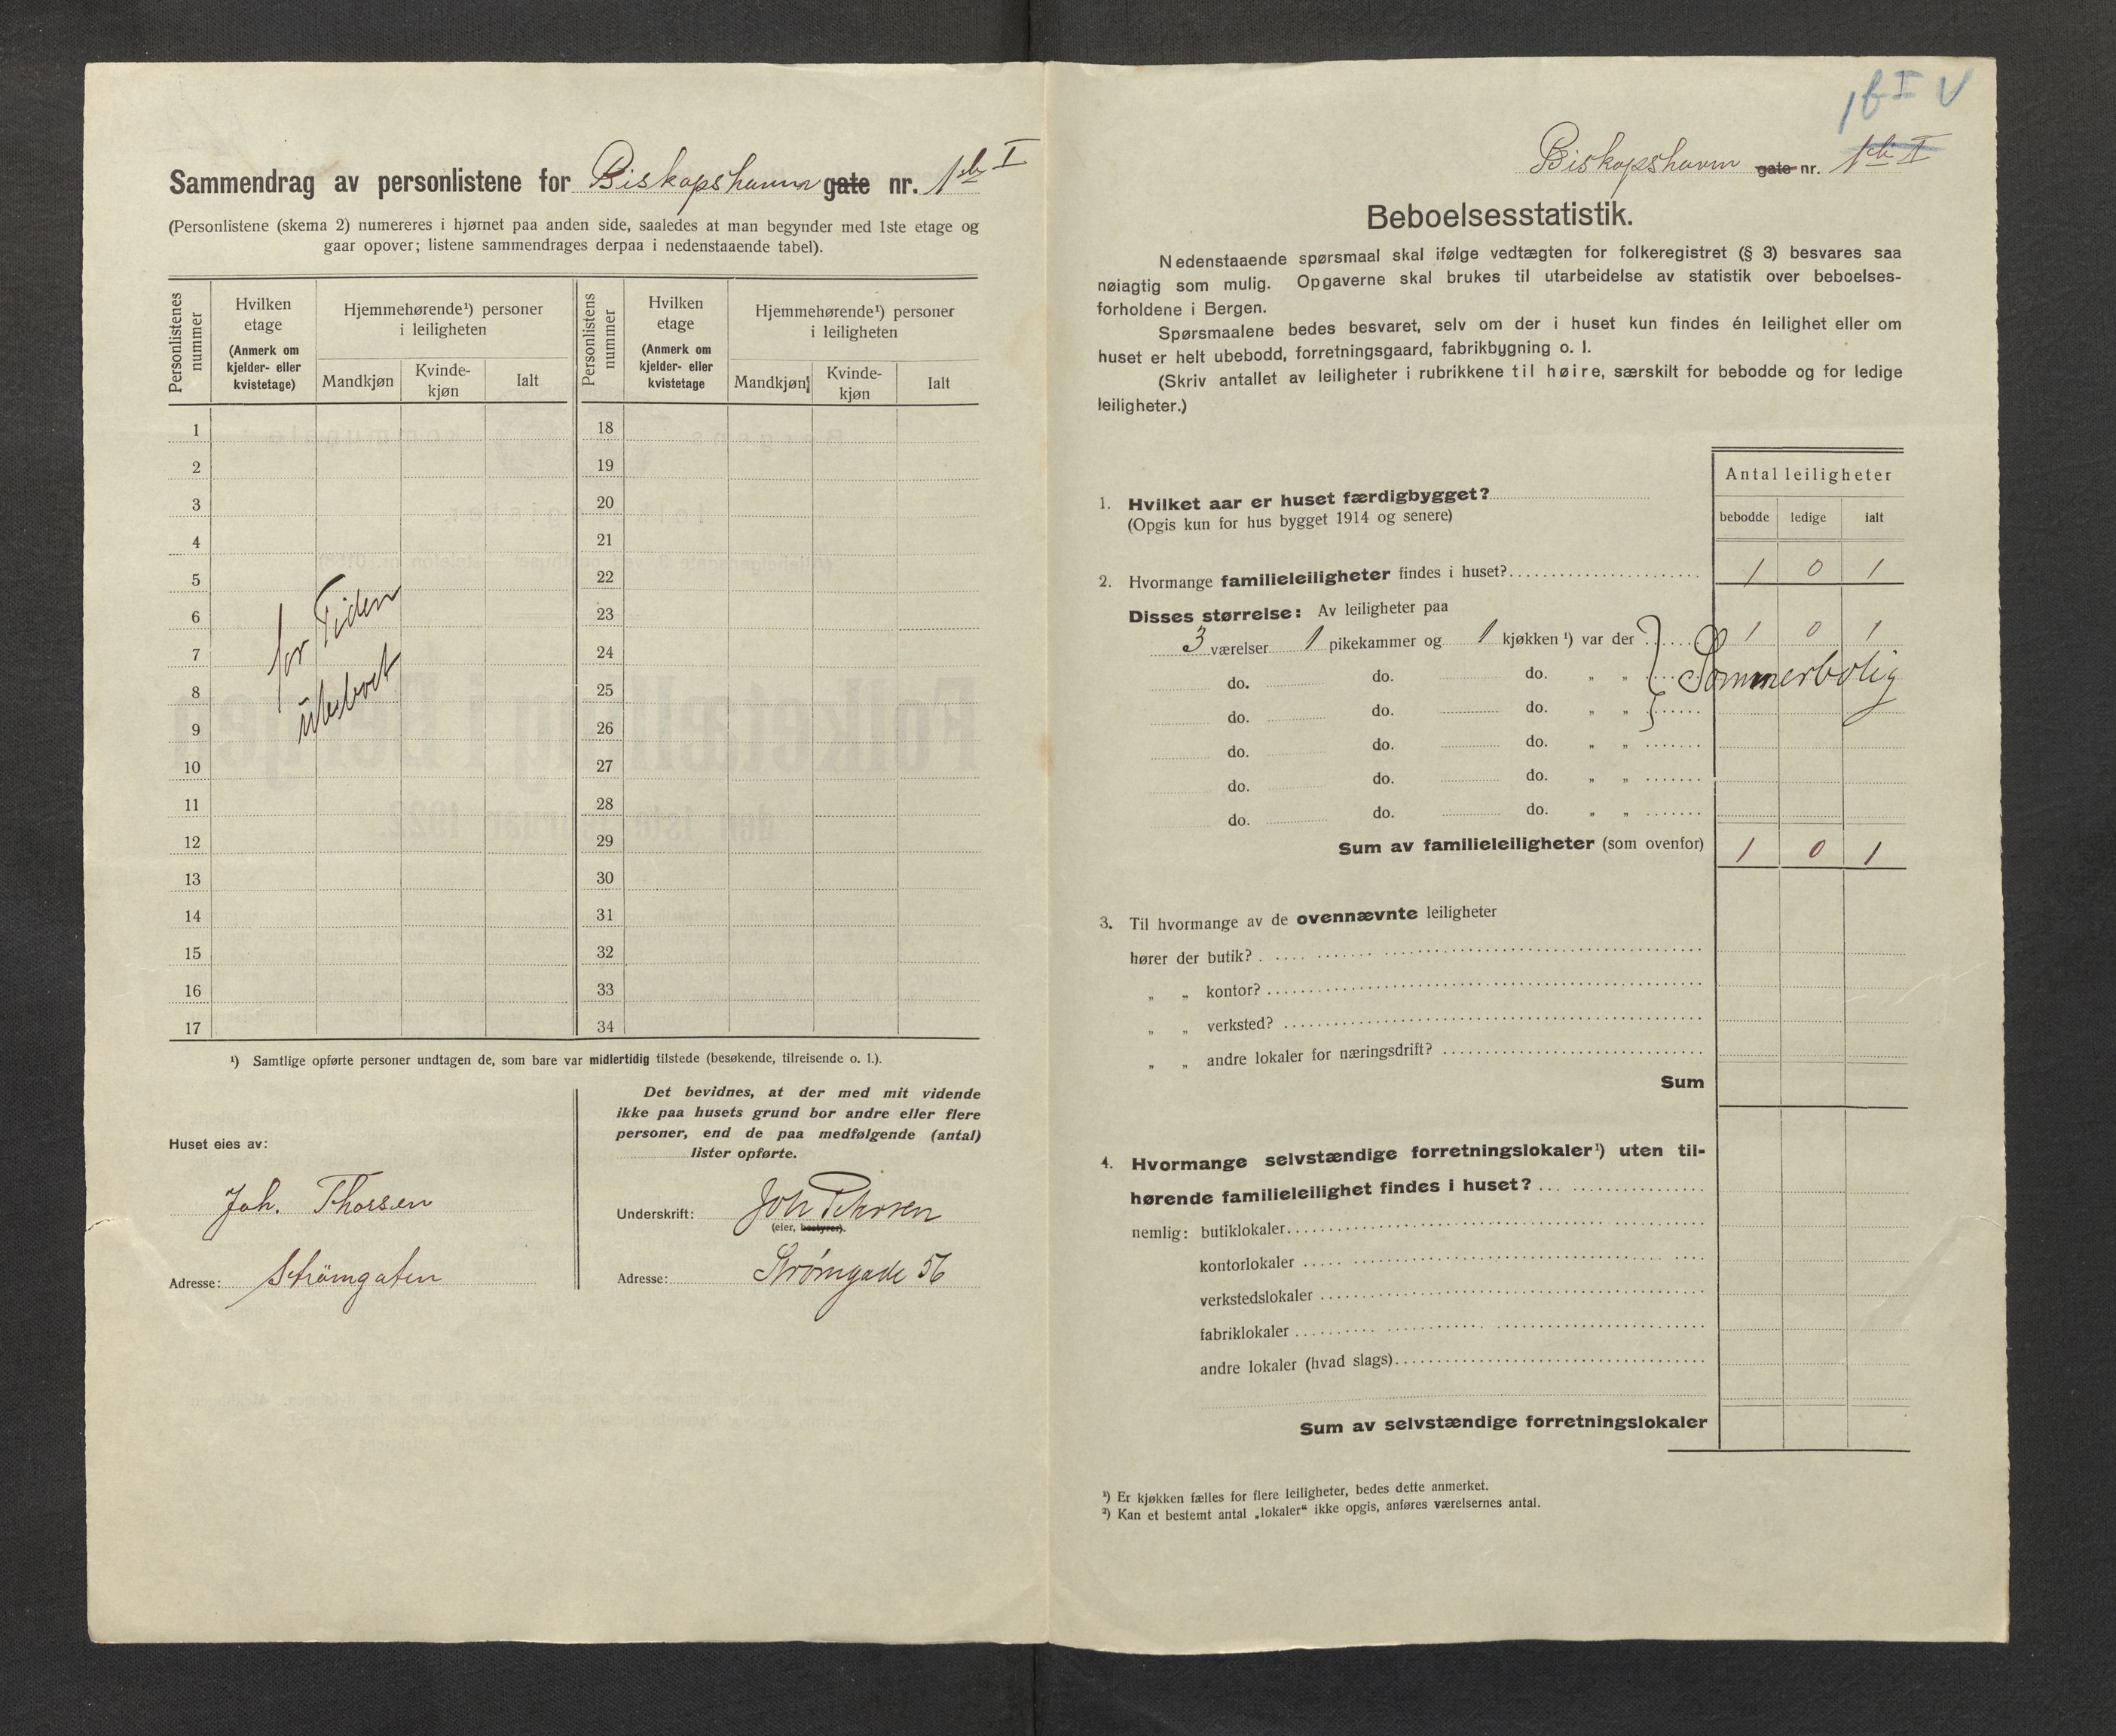 Sammendrag av personlistene for Biskopshavn gate nr. 1 b I
(Personlistene (skema 2) numereres i hjørnet paa anden side, saaledes at man begynder med 1ste etage og
gaar opover; listene sammendrages derpaa i nedenstaaende tabel).
Personlistenes nummer
Hvilken etage
(Anmerk om kjelder- eller kvistetage)
Hjemmehørende¹) personer i leiligheten
Mandkjøn
Kvindekjøn
Ialt
Personlistens nummer
Hvilken etage
(Anmerk om kjelder- eller kvistetage
Hjemmehørende¹) personer i leiligheten
Mandkjøn
Kvinde-kjøn
Ialt
1 18
2 19
3 20
4 21
5 22
6 23
7 24
8 25
9 26
10 27
11 28
12 29
13 30
14 31
15 32
16 33
17 34
for Tiden
ubeboet
¹) Samtlige opførte personer undtagen de, som bare var midlertidig tilstede (besøkende, tilreisende o. l.).
Huset eies av:
Joh. Thorsen
Adresse: Strömgaten
Det bevidnes, at der med mit vidende
ikke paa husets grund bor andre eller flere
personer, end de paa medfølgende (antal)
lister opførte.
Underskrift: Joh Thorsen
(eier, bestyrer).
Adresse: Strømgade 56
1 b I V
Biskopshavn gate nr. 1 b I
Beboelsesstatistik.
Nedenstaaende spørsmaal skal ifølge vedtægten for folkeregistret (§ 3) besvares saa
nøiagtig som mulig. Opgaverne skal brukes til utarbeidelse av statistik over beboelses-
forholdene i Bergen.
Spørsmaalene bedes besvaret, selv om der i huset kun findes én leilighet eller om
huset er helt ubebodd, forretningsgaard, fabrikbygning o. l.
(Skriv antallet av leiligheter i rubrikkene til høire, særskilt for bebodde og for ledige
leiligheter.)
Antal leiligheter
bebodde ledige ialt
1. Hvilket aar er huset færdigbygget?
(Opgis kun for hus bygget 1914 og senere)
2. Hvormange familieleiligheter findes i huset? 1 0 1
Disses størrelse: Av leiligheter paa
3 værelser 1 pikekammer og 1 kjøkken ¹) var der 1 0 1
do. do. do. „ „ Sommerbolig
do. do. do. „ „
do. do. do. „ „
do. do. do. „ „
do. do. do. „ „
Sum av familieleiligheter (som ovenfor) 1 0 1
3. Til hvormange av de ovennævnte leiligheter
hører der butik?
„ „ kontor?
„ „ verksted?
„ „ andre lokaler for næringsdrift?
Sum
4. Hvormange selvstændige forretningslokaler¹) uten til-
hørende familieleilighet findes i huset?
nemlig: butiklokaler
kontorlokaler
verkstedslokaler
fabriklokaler
andre lokaler (hvad slags)
Sum av selvstændige forretningslokaler
¹) Er kjøkken fælles for flere leiligheter, bedes dette anmerket.
²) Kan et bestemt antal „lokaler“ ikke opgis, anføres værelsernes antal.